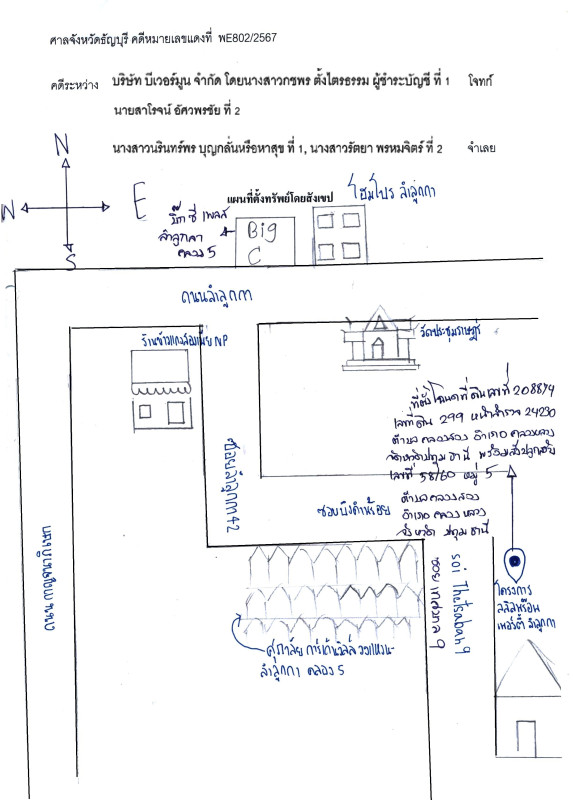 ศาลจังหวัดธัญบุรี คดีหมายเลขแดงที่ ผE802/2567
คดีระหว่าง บริษัท บีเวอร์มูน จำกัด โดยนางสาวกชพร ตั้งไตรธรรม ผู้ชำระบัญชี ที่ 1 โจทก์
นายสาโรจน์ อัศวพรชัย ที่ 2
นางสาวนรินทร์พร บุญกลั่นหรือหาสุข ที่ 1, นางสาวรัตยา พรหมจิตร์ ที่ 2 จำเลย
N
N
E
S
แผนที่ตั้งทรัพย์โดยสังเขป
โฮมโปร ลำลูกกา
บิ๊กซี เพลส
ลำลูกกา
คลอง 5
Big
C
ถนนลำลูกกา
ร้านข้าวแกงสองเมีย NP
วัดประชุมราษฎร์
ที่ตั้งโฉนดที่ดินเลขที่ 208874
เลขที่ดิน 299 หน้าสำรวจ 24230
ตำบล คลองสอง อำเภอ คลองหลวง
จังหวัดปทุมธานี พร้อมสิ่งปลูกสร้าง
เลขที่ 58/60 หมู่ 5
ตำบล คลองสอง
อำเภอ คลองหลวง
จังหวัด ปทุมธานี
ซอยลำลูกกา 42
ซอยบึงคำพร้อย
soi Thetsaban 9
ซอยเทศบาล 9
โครงการ
ลำลูกกา
ศุภาลัย การ์เด้นวิลล์ วงแหวน-
ลำลูกกา คลอง 5